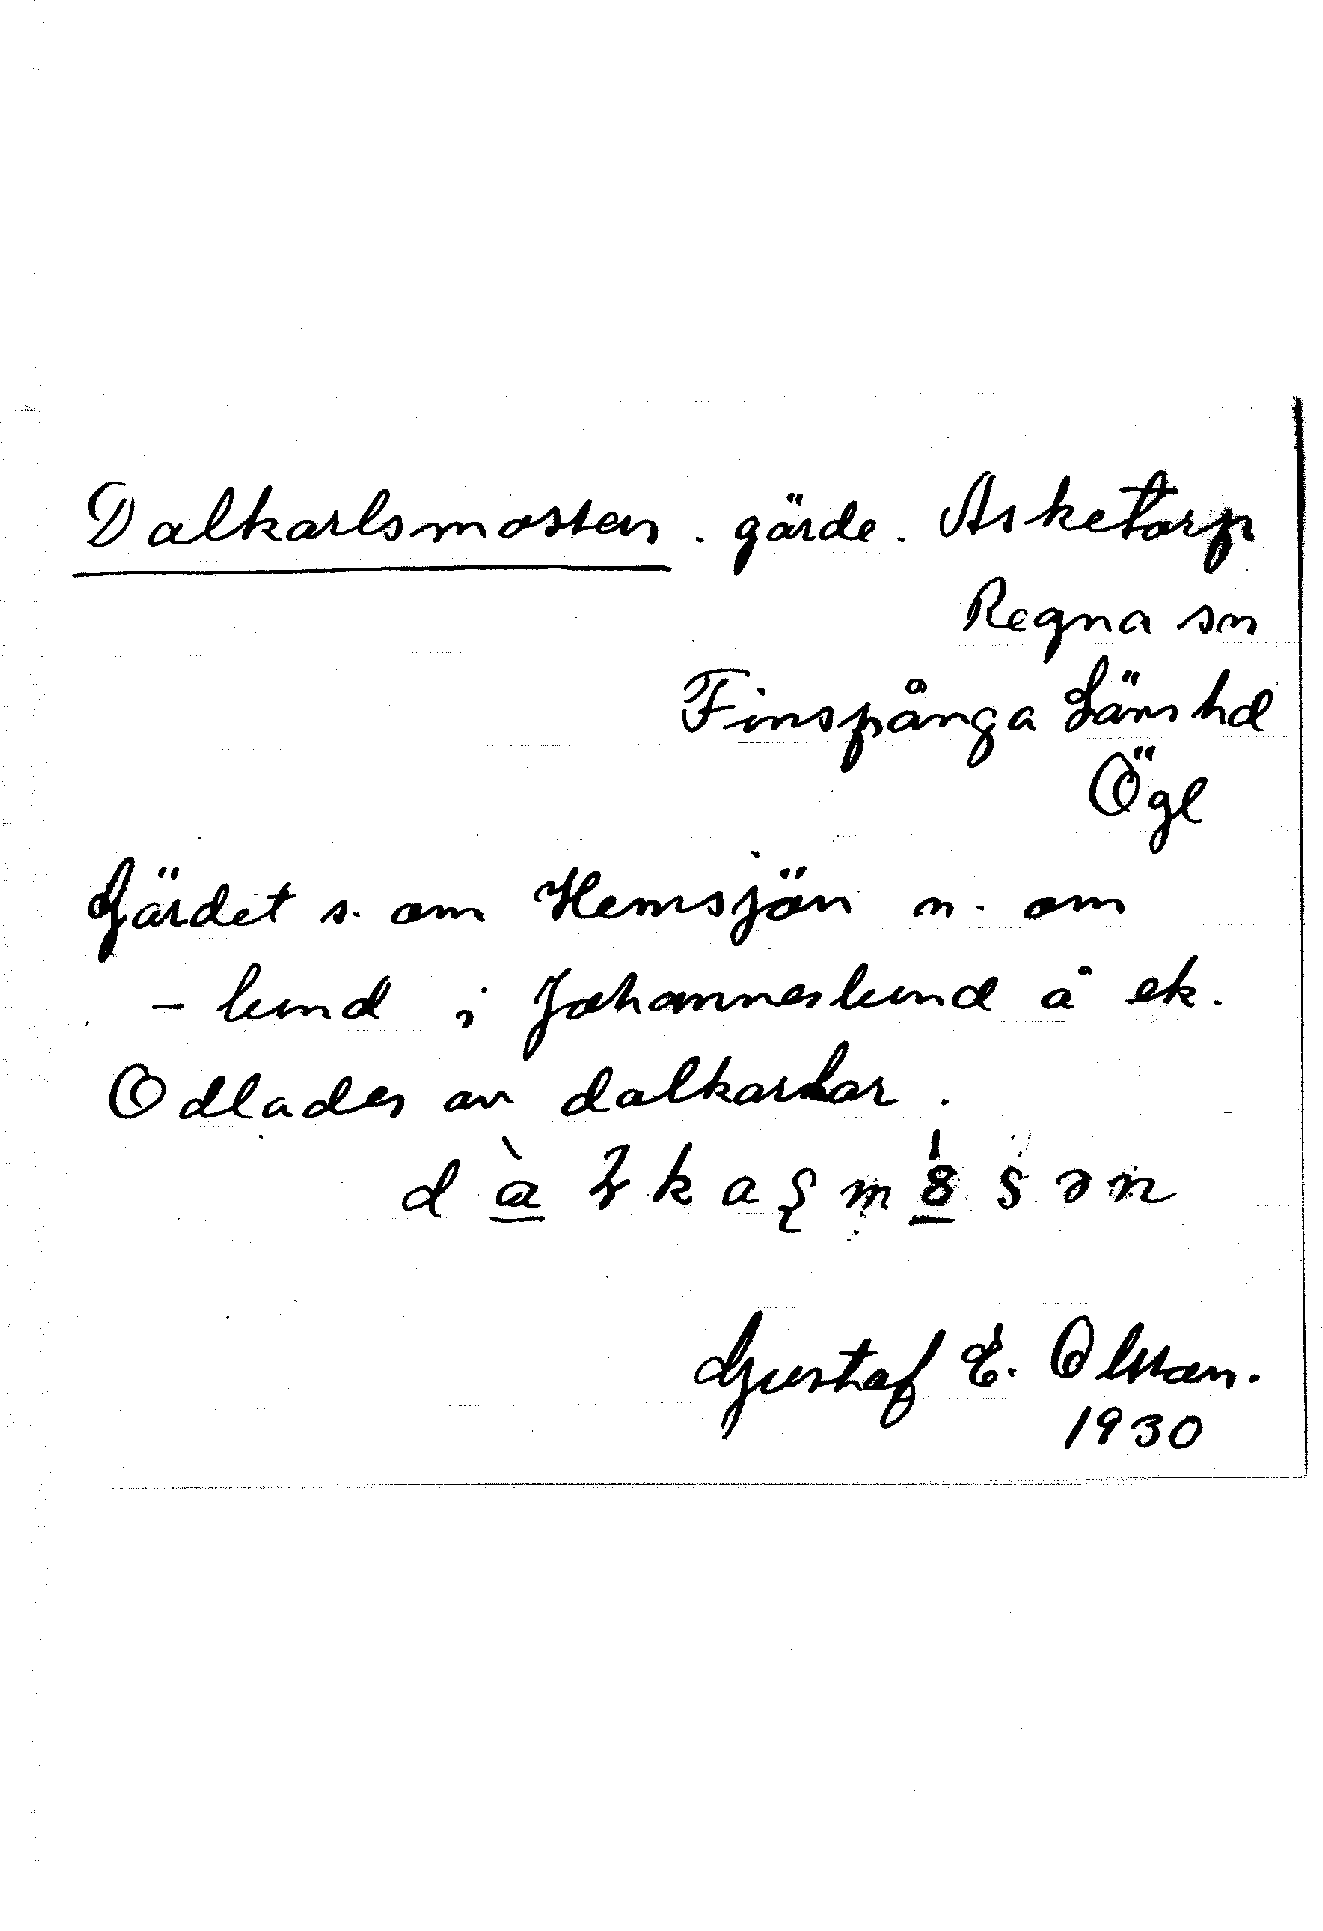 Dalkarlsmossen . gärde . Asketorp
Regna sn
Finspånga Läns hd
Ögl
Gärdet s. om Hemsjön n. om
– lund i Johanneslund å ek.
Odlades av dalkarlar .
Gustaf E. Olsson.
1930